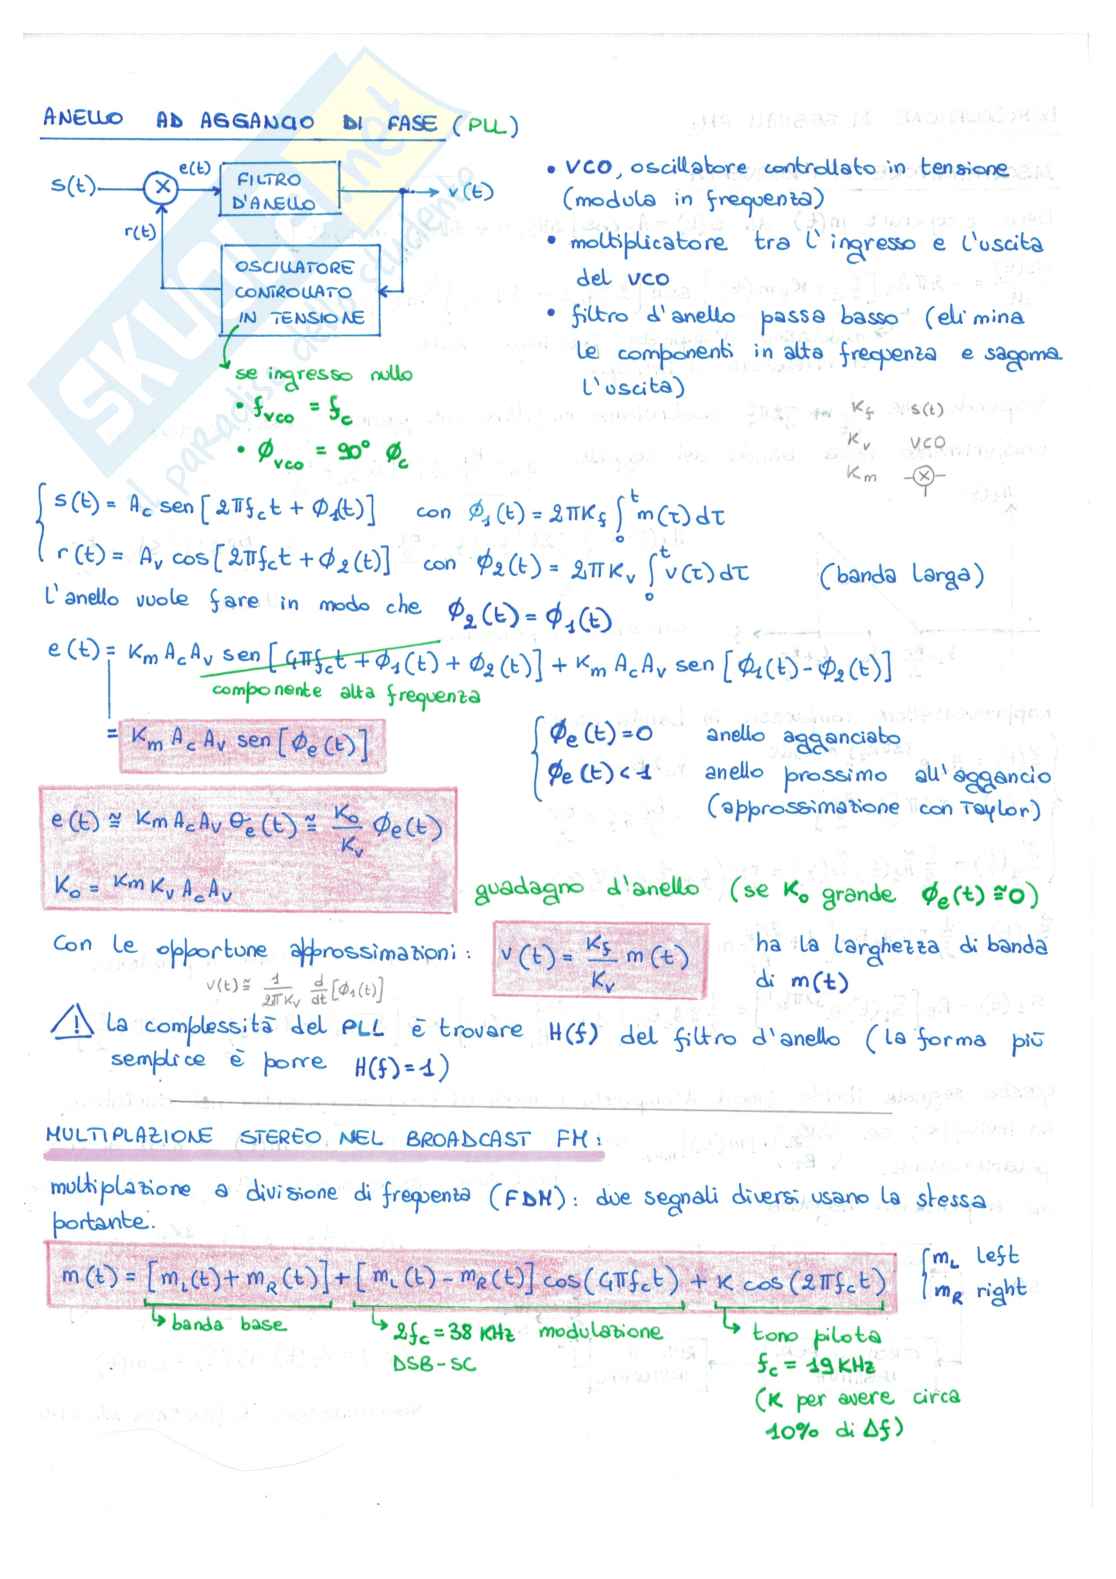 ANELLO AD AGGANCIO DI FASE (PLL)
s(t) e(t) FILTRO D'ANELLO v(t)
r(t)
OSCILLATORE CONTROLLATO IN TENSIONE
se ingresso nullo
• f_vco = f_c
• ϕ_vco = 90° ϕ_c
• VCO, oscillatore controllato in tensione
(modula in frequenza)
• moltiplicatore tra l'ingresso e l'uscita
del VCO
• filtro d'anello passa basso (elimina
le componenti in alta frequenza e sagoma
l'uscita)
K_f s(t)
K_v VCO
K_m ⊗
s(t) = A_c sen[2πf_c t + ϕ_1(t)] con ϕ_1(t) = 2πK_f ∫_0^t m(τ)dτ
r(t) = A_v cos[2πf_c t + ϕ_2(t)] con ϕ_2(t) = 2πK_v ∫_0^t v(τ)dτ (banda larga)
L'anello vuole fare in modo che ϕ_2(t) = ϕ_1(t)
e(t) = K_m A_c A_v sen[4πf_c t + ϕ_1(t) + ϕ_2(t)] + K_m A_c A_v sen[ϕ_1(t) - ϕ_2(t)]
componente alta frequenza
= K_m A_c A_v sen[ϕ_e(t)]
ϕ_e(t) = 0 anello agganciato
ϕ_e(t) < 1 anello prossimo all'aggancio
(approssimazione con Taylor)
e(t) ≅ K_m A_c A_v θ_e(t) ≅ K_0/K_v ϕ_e(t)
K_0 = K_m K_v A_c A_v
guadagno d'anello (se K_0 grande ϕ_e(t) ≅ 0)
Con le opportune approssimazioni: v(t) = K_f/K_v m(t) ha la larghezza di banda
di m(t)
v(t) ≅ 1/2πK_v d/dt [ϕ_1(t)]
⚠ La complessità del PLL è trovare H(f) del filtro d'anello (la forma più
semplice è porre H(f)=1)
MULTIPLAZIONE STEREO NEL BROADCAST FM:
multiplazione a divisione di frequenza (FDM): due segnali diversi usano la stessa
portante.
m(t) = [m_L(t) + m_R(t)] + [m_L(t) - m_R(t)] cos(4πf_c t) + K cos(2πf_c t)
m_L left
m_R right
banda base
2f_c = 38 KHz modulazione
DSB-SC
tono pilota
f_c = 19 KHz
(K per avere circa
10% di Δf)
SKUOLA.net
il paradiso dello studente